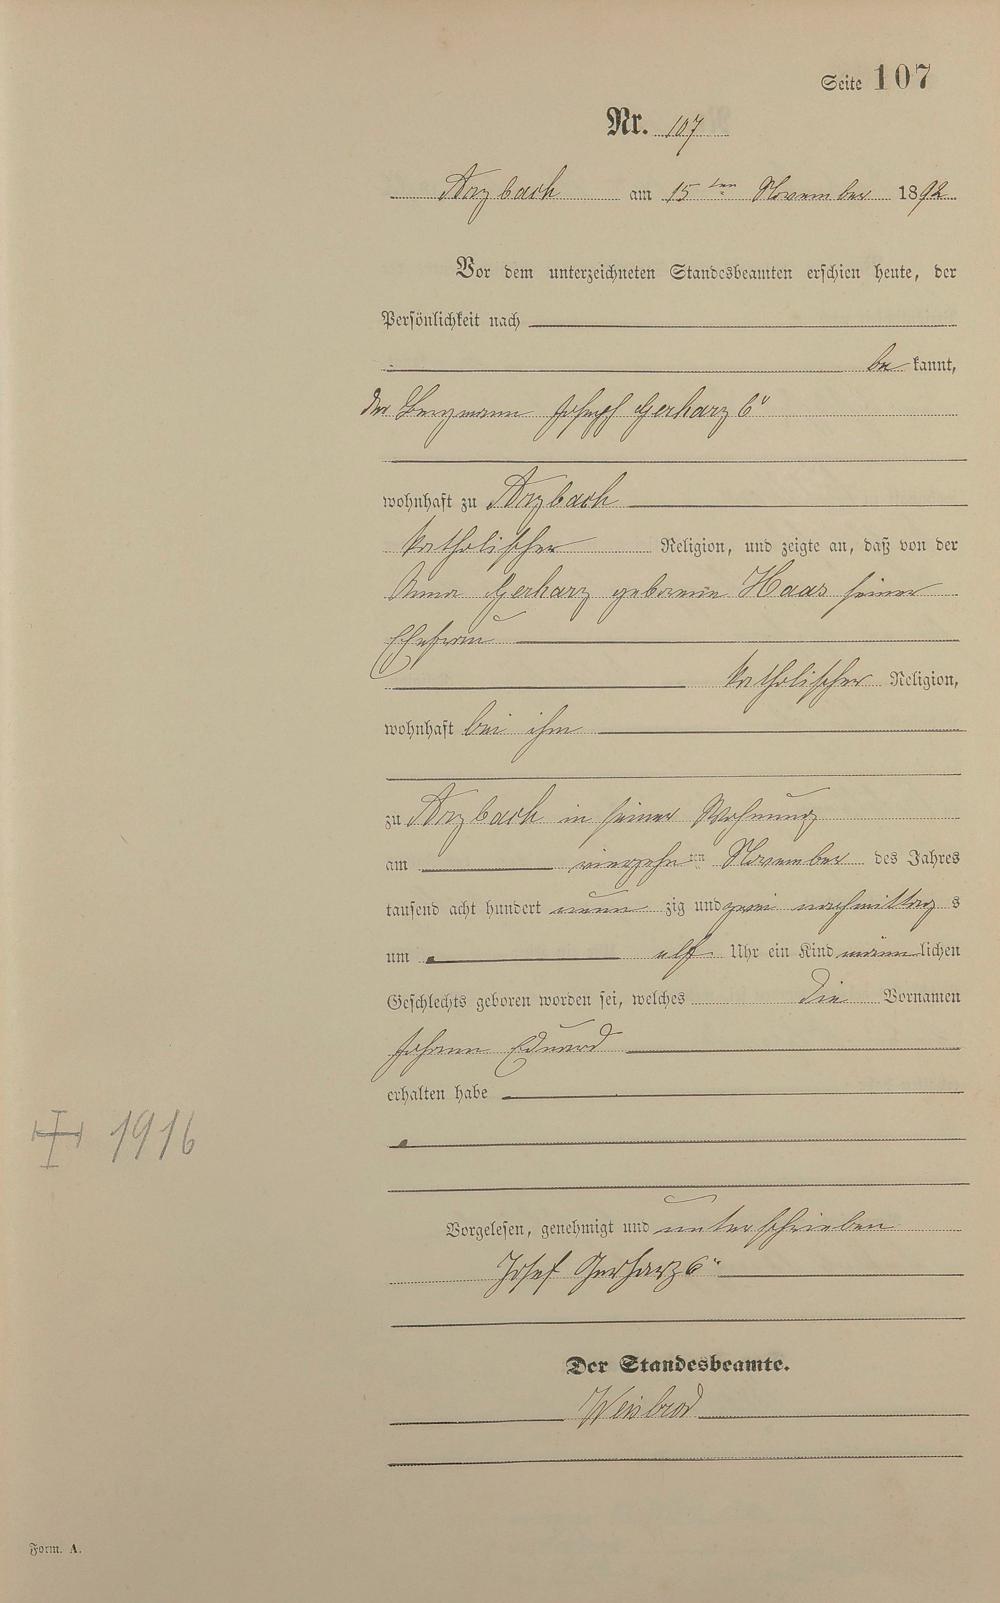 Seite 107
Nr. 107
Arzbach am 15ten November 1892
Vor dem unterzeichneten Standesbeamten erschien heute, der
Persönlichkeit nach
be kannt,
der Bergmann Joseph Gerharz 6"
wohnhaft zu Arzbach
katholischer Religion, und zeigte an, daß von der
Anna Gerharz geborene Haas seiner
Ehefrau
katholischer Religion,
wohnhaft bei ihm
zu Arzbach in seiner Wohnung
am vierzehnten November des Jahres
tausend acht hundert neun zig und zwei nachmittag s
um elf Uhr ein Kind männlichen
Geschlechts geboren worden sei, welches die Vornamen
Johann Eduard
erhalten habe
1916
Vorgelesen, genehmigt und unterschrieben
Josef Gerharz 6"
Der Standesbeamte.
Weisbrod
Form. A.